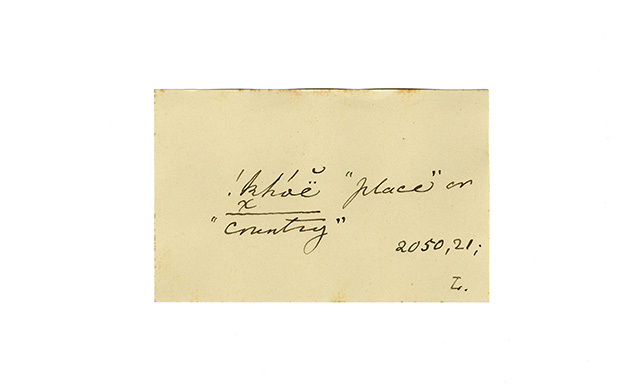 !k͓hóë̆ "place" or
"country"
2050,21;
L.